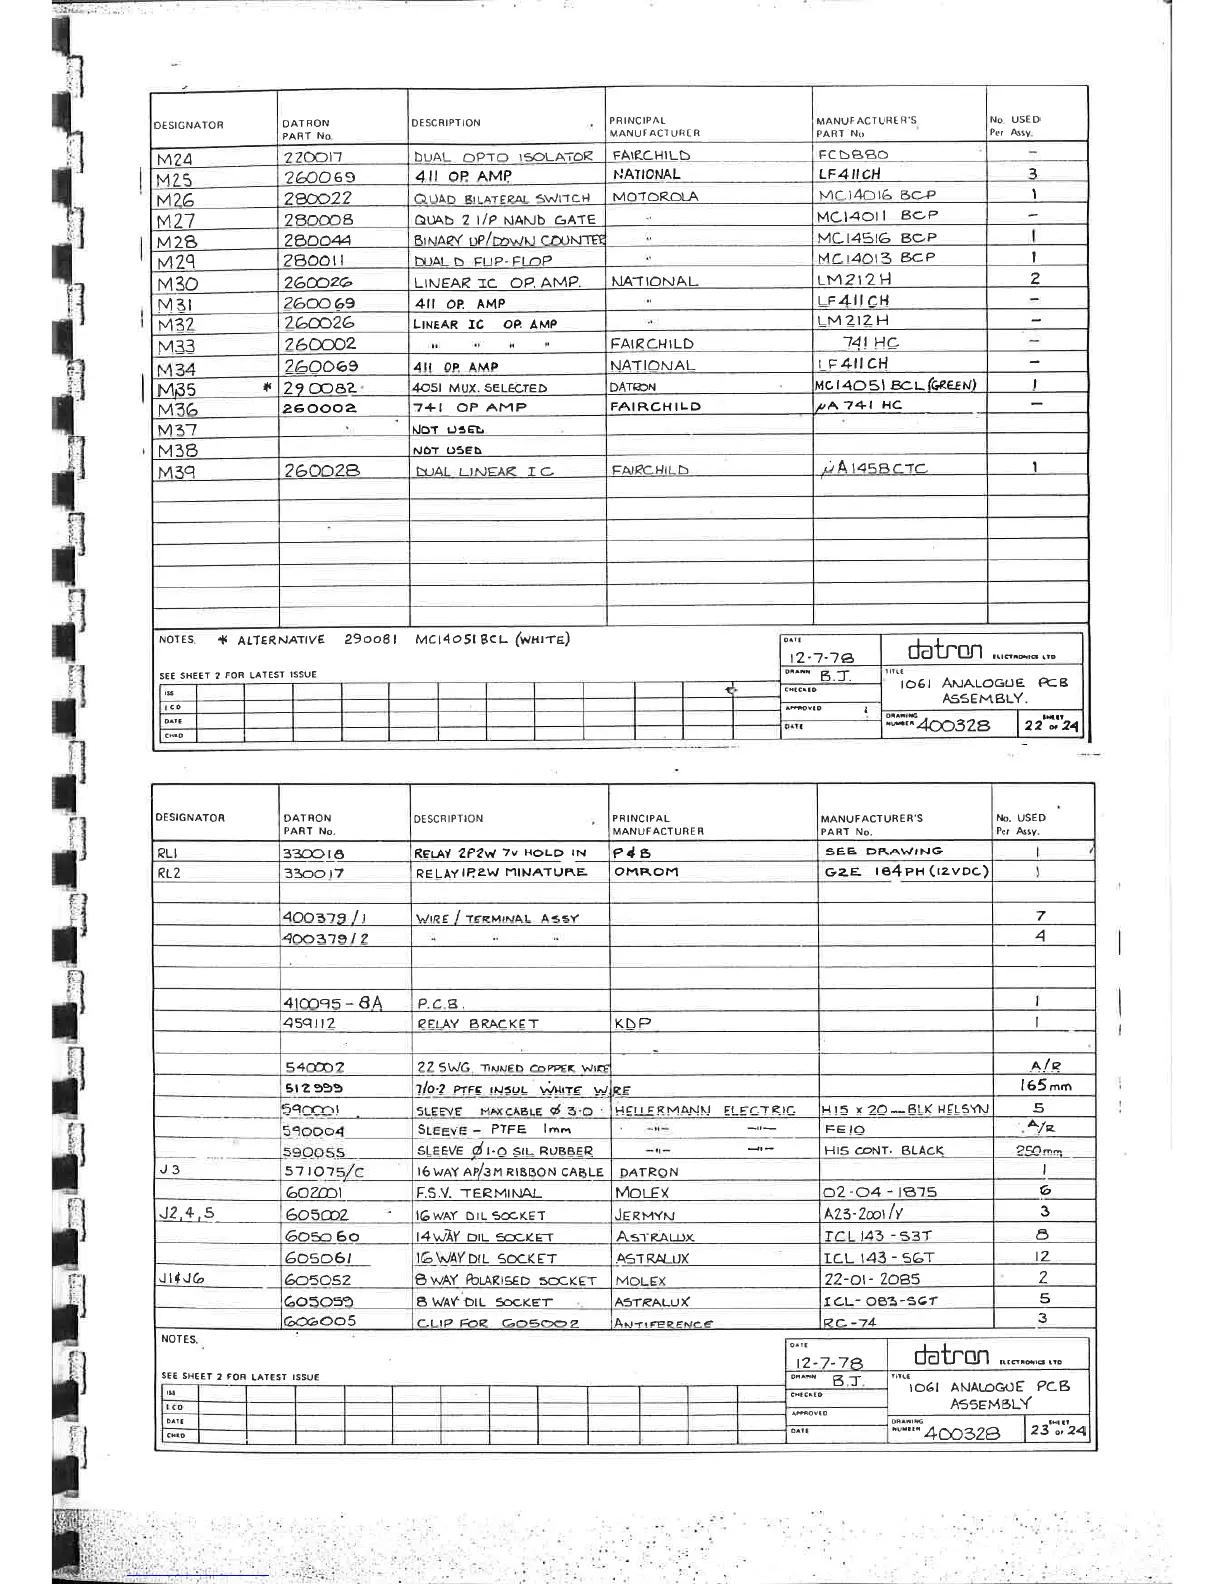 DESIGNATOR DATRON PART No. DESCRIPTION PRINCIPAL MANUFACTURER MANUFACTURER'S PART No No. USED Per Assy.
M24 220017 DUAL OPTO ISOLATOR FAIRCHILD FCD880 –
M25 260069 411 OP. AMP. NATIONAL LF411CH 3
M26 280022 QUAD BILATERAL SWITCH MOTOROLA MC14016 BCP 1
M27 280008 QUAD 2 I/P NAND GATE " MC14011 BCP –
M28 280044 BINARY UP/DOWN COUNTER " MC14516 BCP 1
M29 280011 DUAL D FLIP-FLOP " MC14013 BCP 1
M30 260026 LINEAR IC OP. AMP. NATIONAL LM212H 2
M31 260069 411 OP. AMP " LF411CH –
M32 260026 LINEAR IC OP. AMP " LM212H –
M33 260002 " " " " FAIRCHILD 741 HC –
M34 260069 411 OP. AMP NATIONAL LF411CH –
M35 * 290082 4051 MUX. SELECTED DATRON MC14051 BCL (GREEN) 1
M36 260002 741 OP AMP FAIRCHILD µA 741 HC –
M37 NOT USED
M38 NOT USED
M39 260028 DUAL LINEAR IC FAIRCHILD µA1458CTC 1
NOTES. * ALTERNATIVE 290081 MC14051BCL (WHITE)
SEE SHEET 2 FOR LATEST ISSUE
ISS
ECO
DATE
CHKD
DATE 12-7-78
DRAWN B.J.
CHECKED
APPROVED
DATE
datron ELECTRONICS LTD
TITLE 1061 ANALOGUE PCB ASSEMBLY.
DRAWING NUMBER 400328 SHEET 22 OF 24
DESIGNATOR DATRON PART No. DESCRIPTION PRINCIPAL MANUFACTURER MANUFACTURER'S PART No. No. USED Per Assy.
RL1 330018 RELAY 2P2W 7V HOLD IN P4B SEE DRAWING 1
RL2 330017 RELAY 1P.2W MINATURE OMROM G2E 184PH (12VDC) 1
400379/1 WIRE / TERMINAL ASSY 7
400379/2 " " " 4
410095-8A P.C.B. 1
459112 RELAY BRACKET KDP 1
540002 22 SWG. TINNED COPPER WIRE A/R
512999 7/0·2 PTFE INSUL WHITE WIRE 165mm
590001 SLEEVE MAX CABLE Ø 3·0 HELLERMANN ELECTRIC H15 x 20—BLK HELSYN 5
590004 SLEEVE – PTFE 1mm –"– –"– FE10 A/R
590055 SLEEVE Ø1·0 SIL RUBBER –"– –"– H15 CONT. BLACK 250mm
J3 571075/C 16 WAY AP/3M RIBBON CABLE DATRON 1
602001 F.S.V. TERMINAL MOLEX 02-04-1875 6
J2,4,5 605002 16 WAY DIL SOCKET JERMYN A23-2001/Y 3
605060 14 WAY DIL SOCKET ASTRALUX ICL 143-S3T 8
605061 16 WAY DIL SOCKET ASTRALUX ICL 143-S6T 12
J1&J6 605052 8 WAY POLARISED SOCKET MOLEX 22-01-2085 2
605059 8 WAY DIL SOCKET ASTRALUX ICL-083-S6T 5
606005 CLIP FOR 605002 ANTIFERENCE RC-74 3
NOTES.
SEE SHEET 2 FOR LATEST ISSUE
ISS
ECO
DATE
CHKD
DATE 12-7-78
DRAWN B.J.
CHECKED
APPROVED
DATE
datron ELECTRONICS LTD
TITLE 1061 ANALOGUE PCB ASSEMBLY
DRAWING NUMBER 400328 SHEET 23 OF 24